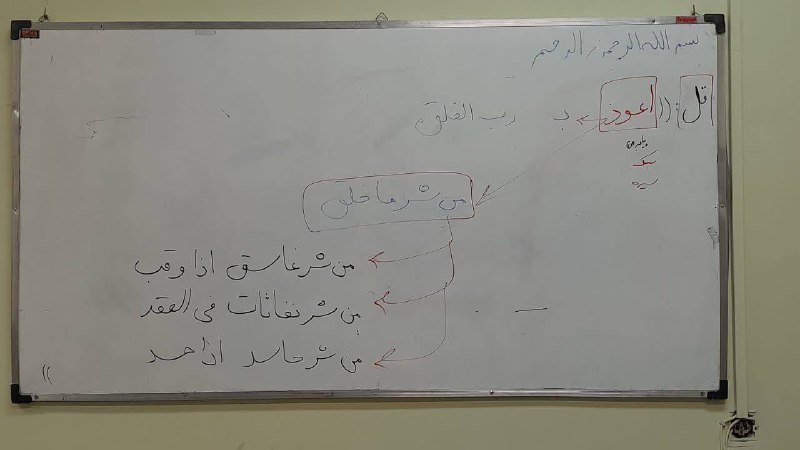 بسم الله الرحمن الرحیم
قل : (( اعوذ ب رب الفلق
من شر ما خلق
من شر غاسق اذا وقب
من شر نفاثات فی العقد
من شر حاسد اذا حسد ))